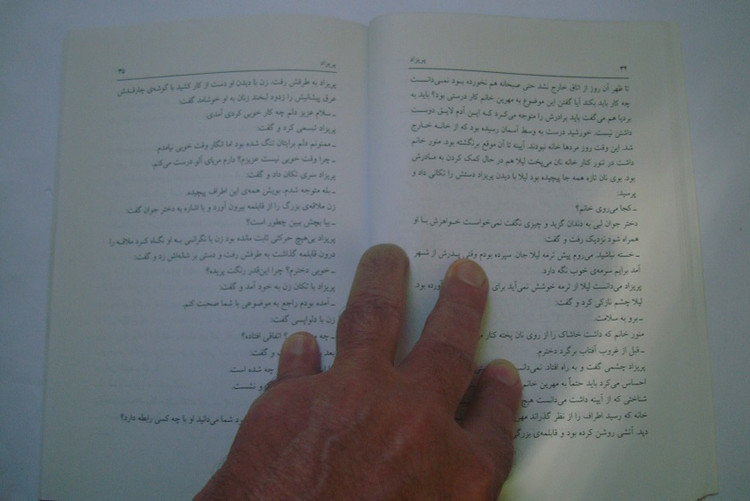 ۳۴
پریزاد
تا ظهر آن روز از اتاق خارج نشد حتی صبحانه هم نخورده بود نمی‌دانست
چه کار باید بکند آیا گفتن این موضوع به مهرین خانم کار درستی بود؟ باید به
بردیا هم می‌گفت باید برادرش را متوجه می‌کرد کـه ایـن آدم لایـق دوسـت
داشتن نیست. خورشید درست به وسط آسمان رسیده بود که از خانـه خـارج
شد. این وقت روز مردها خانه نبودند. آیینه تا آن موقع برنگشته بود. منور خانم
داشت در تنور کنار خانه نان می‌پخت لیلا هم در حال کمک کردن به مـادرش
بود. بوی نان تازه همه جا پیچیده بود لیلا با دیدن پریزاد دستش را تکانی داد و
پرسید:
ـ کجا می‌روی خانم؟
دختر جوان لبی به دندان گزید و چیزی نگفت نمی‌خواست خـواهرش بـا او
همراه شود نزدیک رفت و گفت:
ـ خسته نباشید. می‌روم پیش ترمه لیلا جان سپرده بودم وقتی پـدرش از شـهر
آمد برایم سرمه‌ی خوب نگه دارد.
پریزاد می‌دانست لیلا از ترمه خوشش نمی‌آید برای آورده بود.
لیلا چشم نازکی کرد و گفت:
ـ برو به سلامت.
منور خانم که داشت خاشاک را از روی نان پخته کنار
ـ قبل از غروب آفتاب برگرد دخترم.
پریزاد چشمی گفت و به راه افتاد. نمی‌دانست
احساس می‌کرد باید حتماً به مهرین خانم
شناختی که از آیینه داشت می‌دانست هیچ
خانه که رسید اطراف را از نظر گذراند مهر
دید. آتشی روشن کرده بود و قابلمه‌ی بزرگی
پریزاد
۳۵
پریزاد به طرفش رفت. زن با دیدن او دست از کار کشید با گوشه‌ی چارقدش
عرق پیشانیش را زدود لبخند زنان به او خوشامد گفت:
ـ سلام عزیز دلم چه کار خوبی کردی آمدی.
پریزاد تبسمی کرد و گفت:
ـ ممنونم دلم برایتان تنگ شده بود اما انگار وقت خوبی نیامدم.
ـ چرا وقت خوبی نیست عزیزم؟ دارم مربای آلو درست می‌کنم
پریزاد سری تکان داد و گفت:
ـ بله متوجه شدم. بویش همه‌ی این اطراف پیچیده.
زن ملاقه‌ی بزرگ را از قابلمه بیرون آورد و با اشاره به دختر جوان گفت:
ـ بیا بچش ببین چطور است؟
پریزاد بی‌هیچ حرکتی ثابت مانده بود زن با نگرانی بـه او نگـاه کـرد ملاقـه را
درون قابلمه گذاشت به طرفش رفت و دستی بر شانه‌اش زد و گفت:
ـ خوبی دخترم؟ چرا این‌قدر رنگت پریده؟
پریزاد با تکان زن به خود آمد و گفت:
ـ آمده بودم راجع به موضوعی با شما صحبت کنم.
زن با دلواپسی گفت:
ـ چه اتفاقی افتاده؟
بعد و گفت:
چه شده است.
و نشست.
شما می‌دانید او با چه کسی رابطه دارد؟